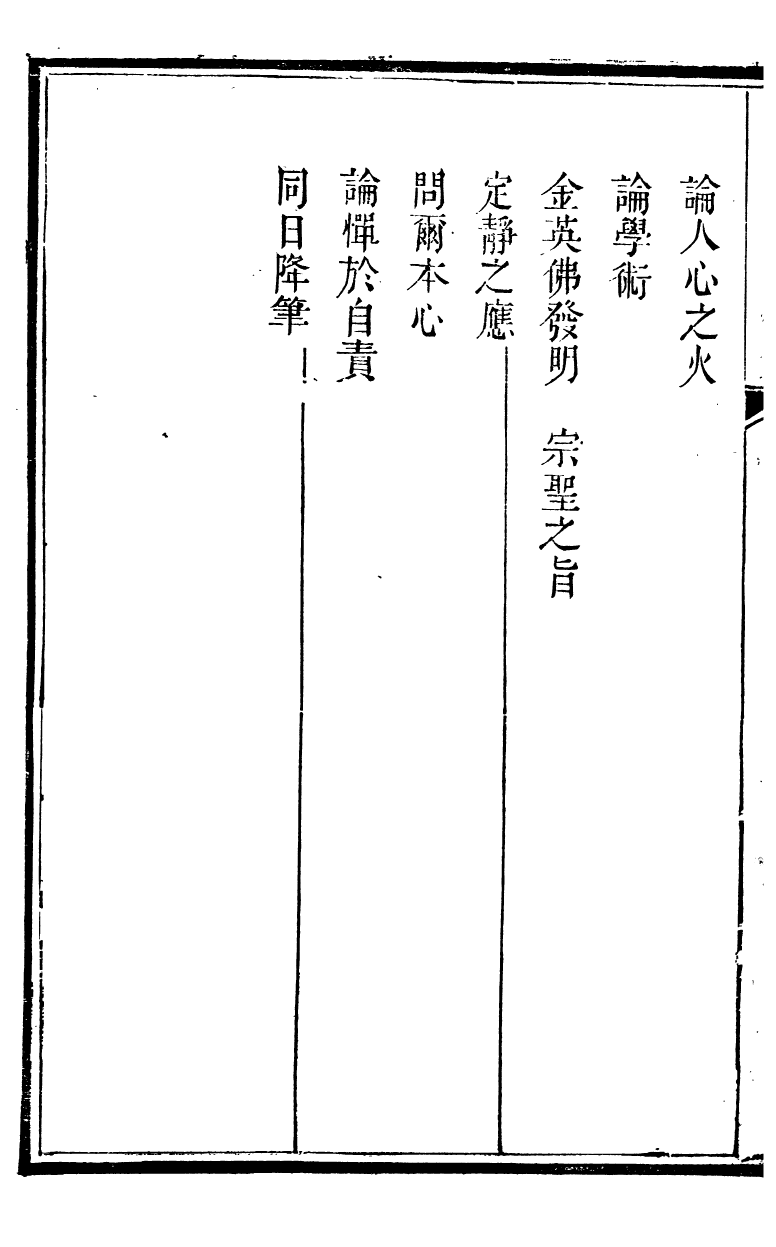 論人心之火
論學術
金英佛發明　宗聖之旨
定靜之應
問爾本心
論憚於自責
同日降筆